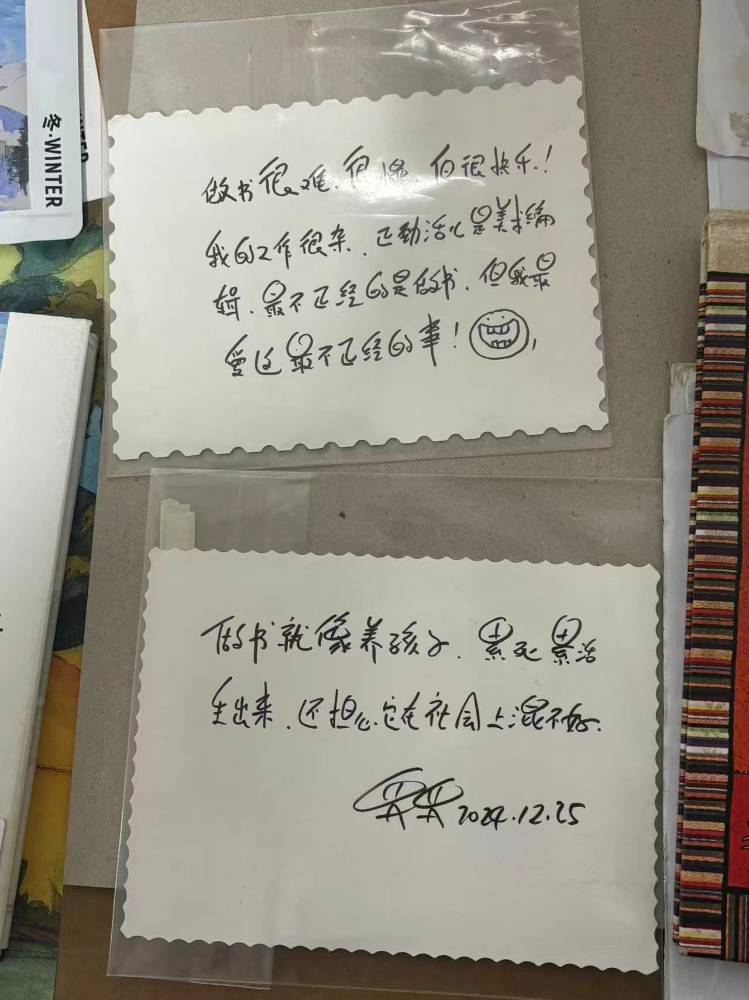 冬·WINTER
做书很难、很慢、但很快乐！
我的工作很杂、正勁活儿是美术编
辑、最不正经的是做书、但我最
爱这最不正经的事！
做书就像养孩子、累死累活
生出来、还担心它在社会上混不好.
2024.12.25